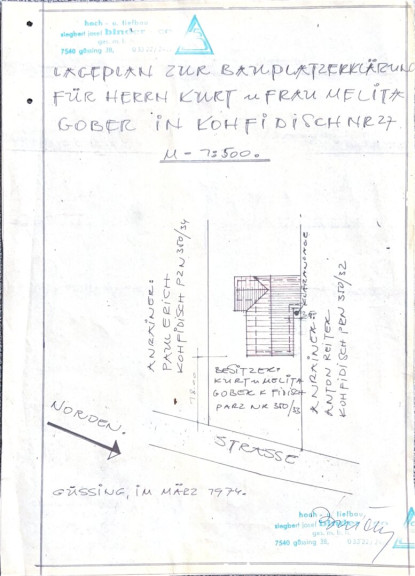 hoch- u. tiefbau
siegbert josef binder
ges. m. b. h.
7540 güssing
LAGEPLAN ZUR BAUPLATZERKLÄRUNG
FÜR HERRN KURT u FRAU MELITA
GOBER IN KOHFIDISCH NR 27
M - 1:500.
ANRAINER:
PAUL ERICH
KOHFIDISCH PZN 350/34
KLÄRANLAGE
ANRAINER:
ANTON REITER
KOHFIDISCH PRN 350/32
BESITZER:
KURT u MELITA
GOBER KFIDISH
PARZ NR 350/33
NORDEN.
STRASSE
GÜSSING, IM MÄRZ 1974.
hoch- u. tiefbau
siegbert josef
ges. m. b. h.
7540 güssing